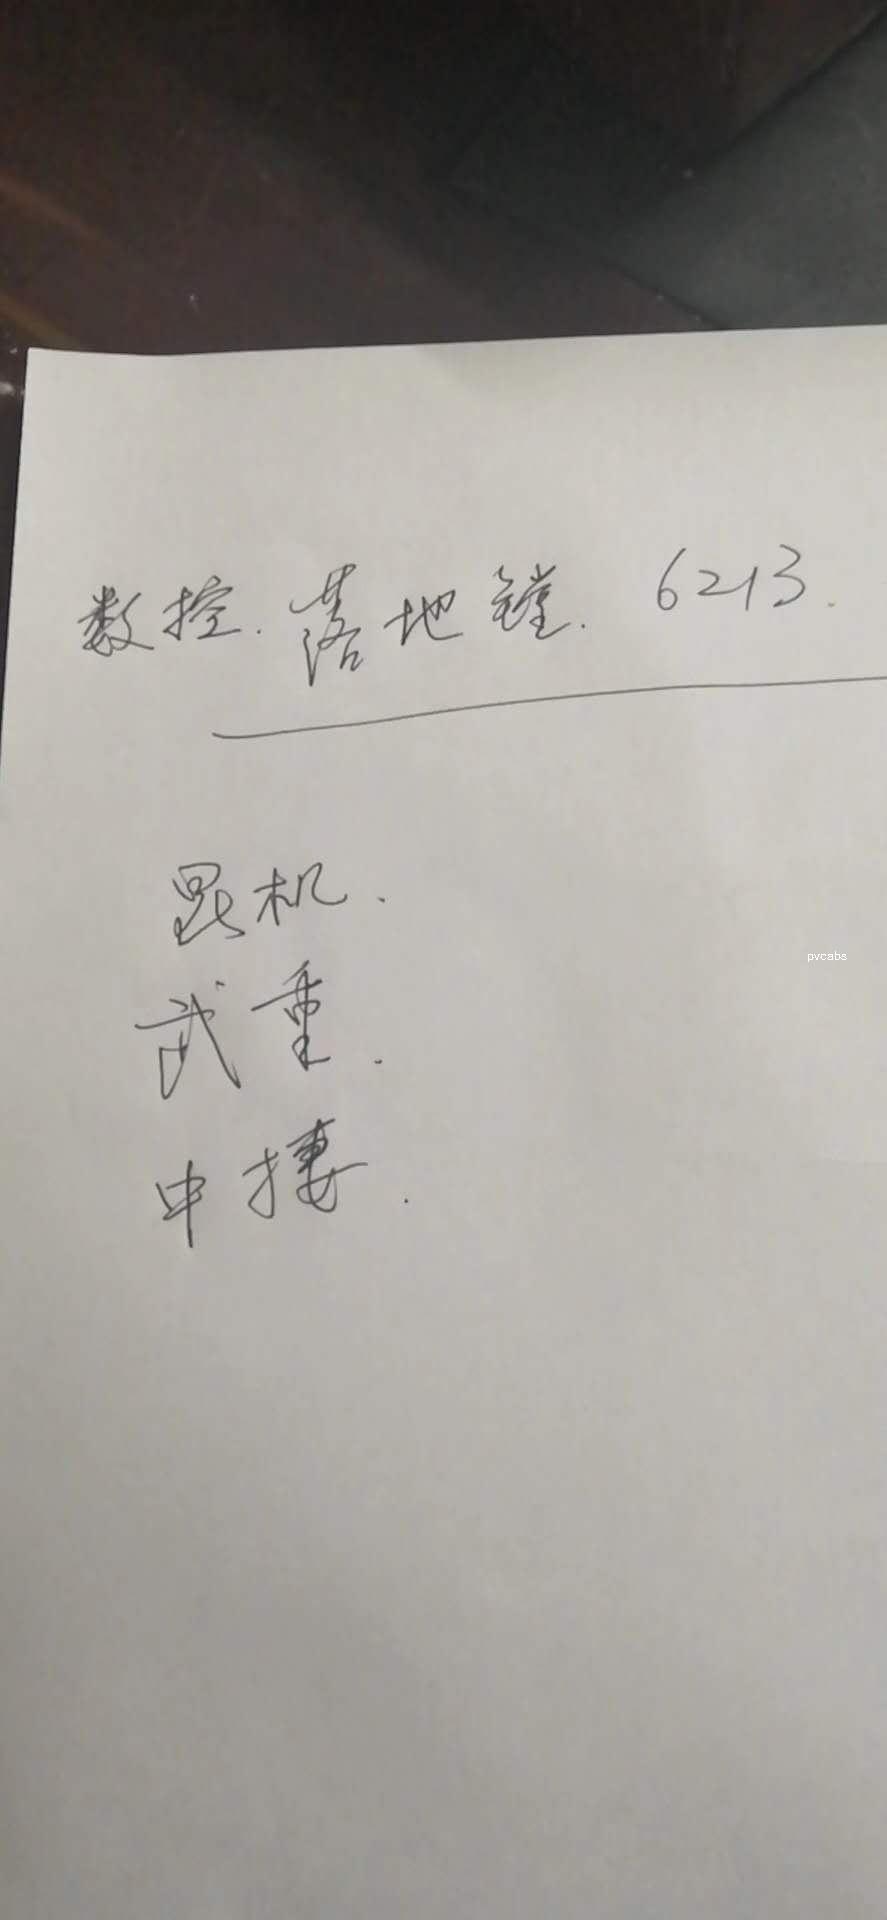 数控.落地镗. 6213.
昆机.
武重.
pvcabs
中捷.